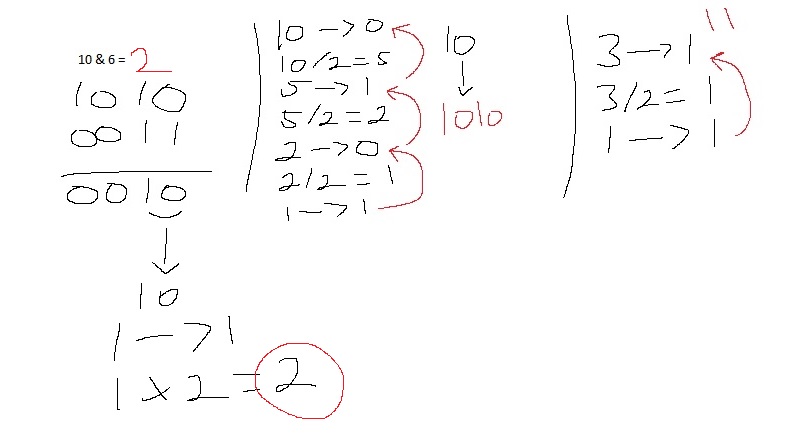 10 & 6 = 2
1010
0011
0010
10
1 -> 1
1 x 2 = 2
10 -> 0
10/2 = 5
5 -> 1
5/2 = 2
2 -> 0
2/2 = 1
1 -> 1
10
1010
11
3 -> 1
3/2 = 1
1 -> 1